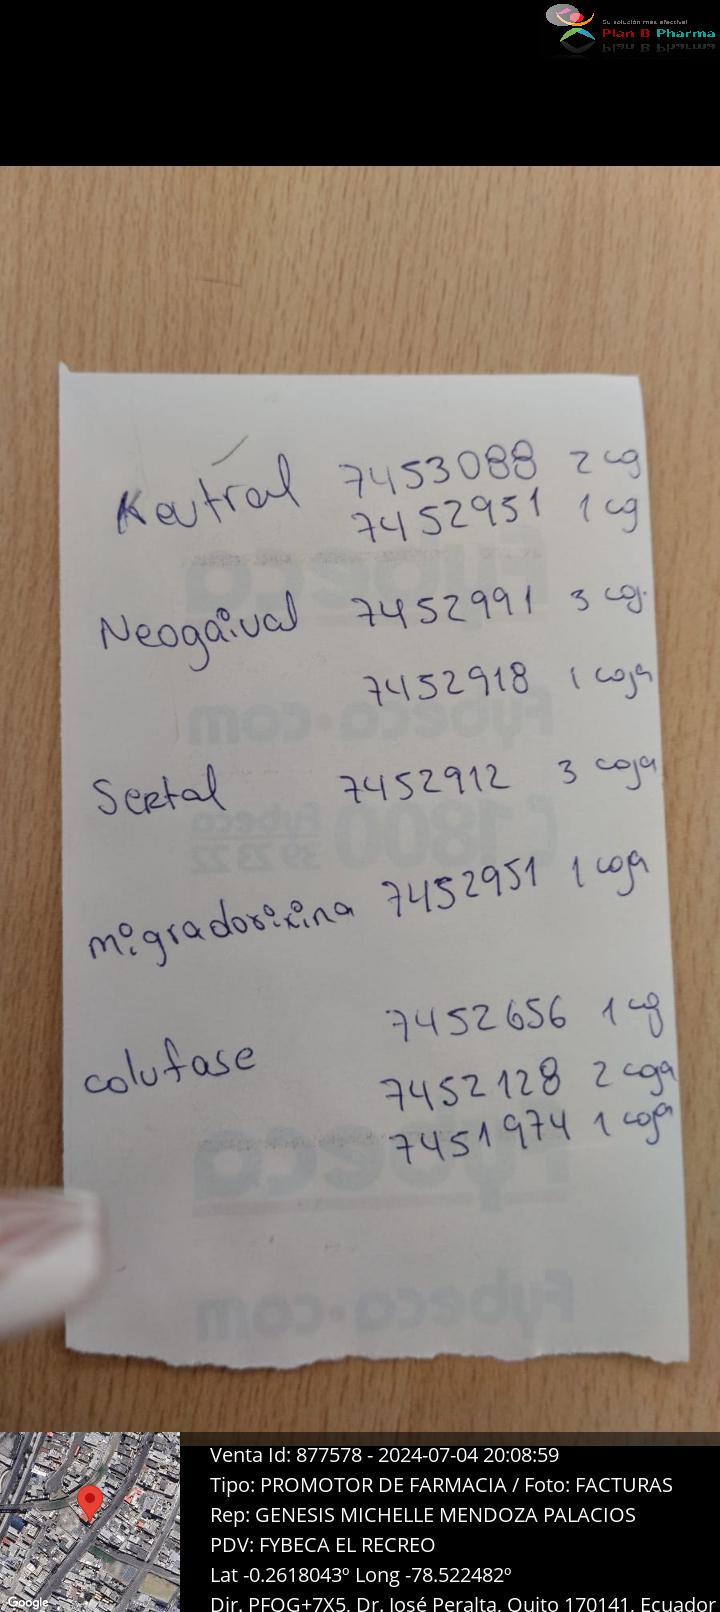 Su solución más efectiva!
Plan B Pharma
Keutral 7453088 2 cg
7452951 1 cg
Neogaival 7452991 3 cg.
7452918 1 caja
Sertal 7452912 3 caja
migradorixina 7452951 1 caja
colufase 7452656 1 cg
7452128 2 caja
7451974 1 caja
Fybeca
Fybeca.com
1800 Fybeca
39 23 22
Fybeca
Fybeca.com
Google
Venta Id: 877578 - 2024-07-04 20:08:59
Tipo: PROMOTOR DE FARMACIA / Foto: FACTURAS
Rep: GENESIS MICHELLE MENDOZA PALACIOS
PDV: FYBECA EL RECREO
Lat -0.2618043º Long -78.522482º
Dir. PFQG+7X5, Dr. José Peralta, Quito 170141, Ecuador